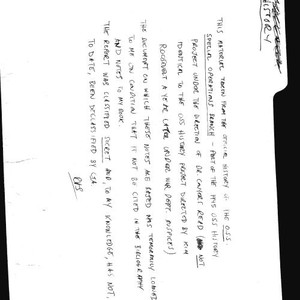 HISTORY
THIS MATERIAL TAKEN FROM THE OFFICIAL HISTORY OF THE O.S.S.
SPECIAL OPERATIONS BRANCH - PART OF THE 1945 OSS HISTORY
PROJECT UNDER THE DIRECTION OF DR CONYERS READ (NOT
IDENTICAL TO THE OSS HISTORY PROJECT DIRECTED BY KIM
ROOSEVELT A YEAR LATER UNDER WAR DEPT. AUSPICES)
THE DOCUMENT ON WHICH THESE NOTES ARE BASED WAS TEMPORARILY LOANED
TO ME ON CONDITION THAT IT NOT BE CITED IN THE BIBLIOGRAPHY
AND NOTES TO MY BOOK.
THE REPORT WAS CLASSIFIED SECRET AND TO MY KNOWLEDGE, HAS NOT,
TO DATE, BEEN DECLASSIFIED BY CIA